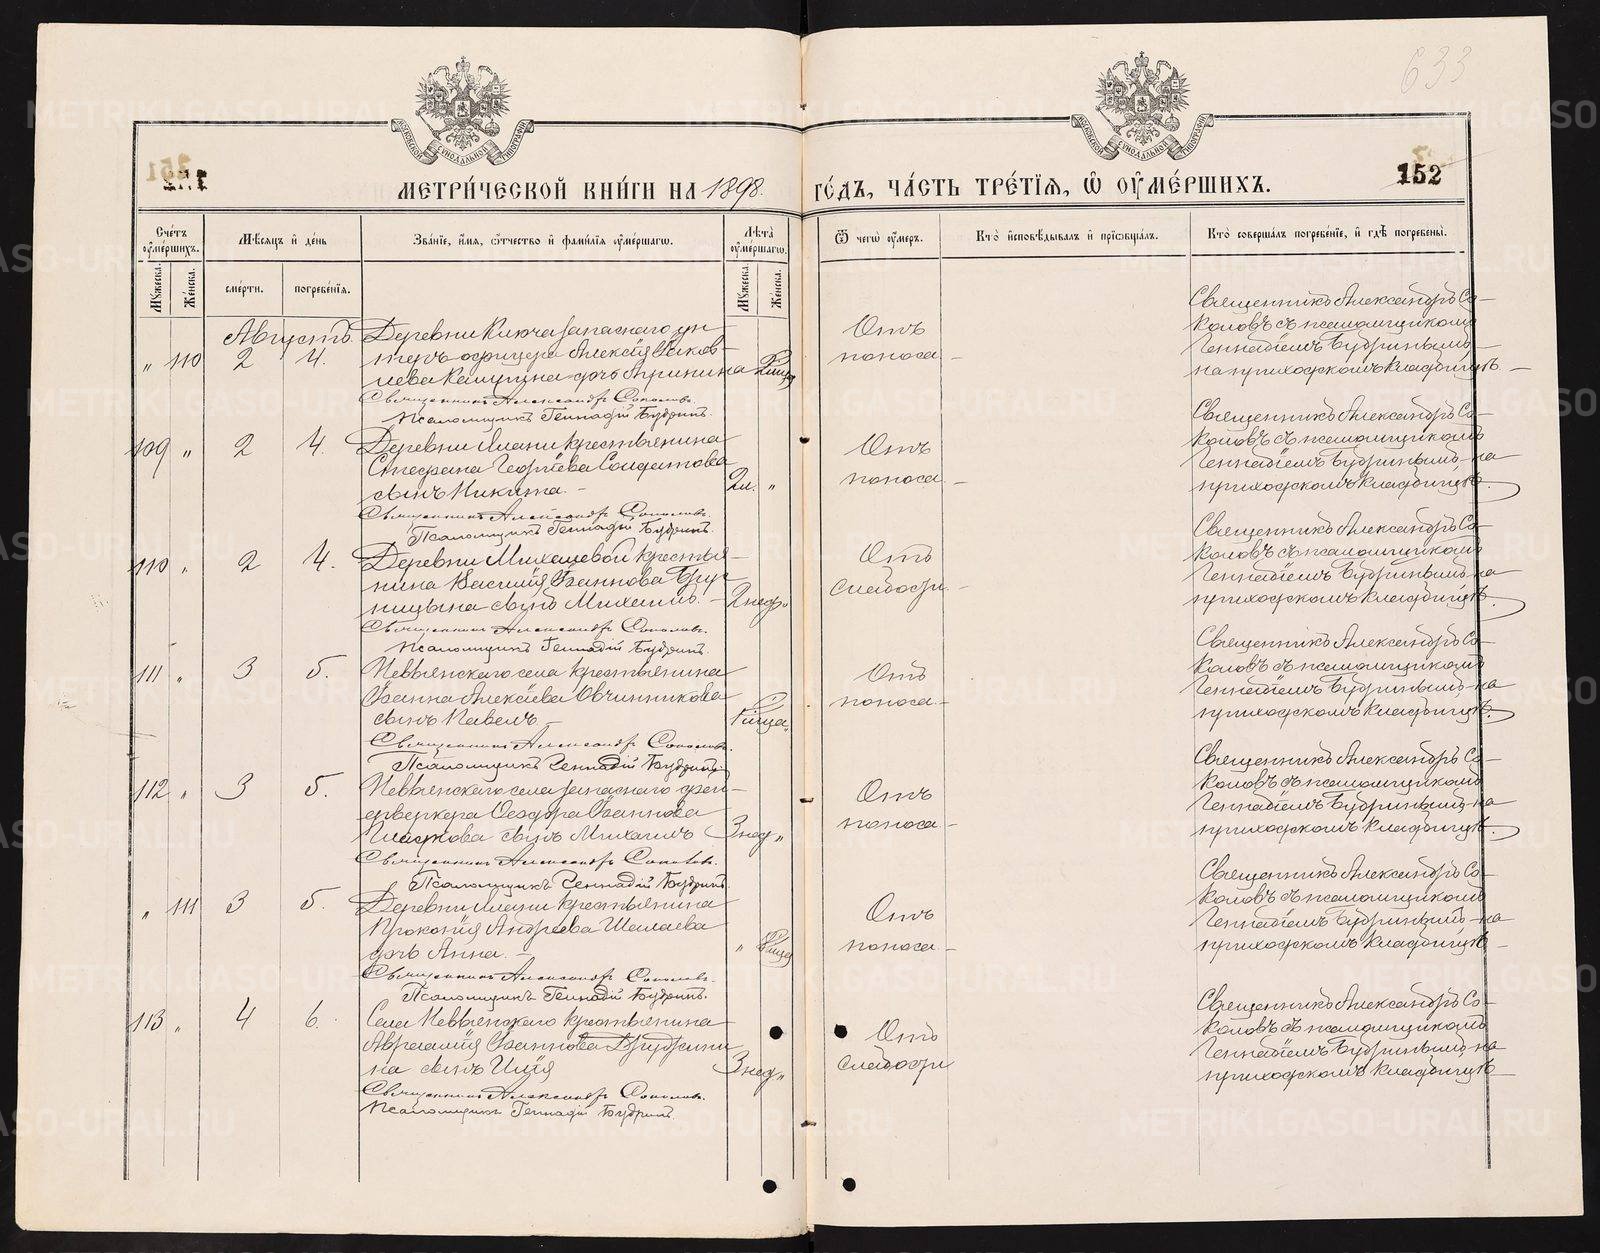 633
152
МЕТРИ́ЧЕСКОЙ КНИ́ГИ НА 1898. ГО́ДЪ, ЧА́СТЬ ТРЕ́ТІѦ, Ѡ҆ ОУ҆МЕ́РШИХЪ.
Счетъ оумершихъ.
Мѣсяцъ и день
Званіе, имя, отчество и фамилія оумершагω.
Лѣта оумершагω.
Ѿ чегω оумеръ.
Кто исповѣдывалъ и пріωбщалъ.
Кто совершалъ погребеніе, и гдѣ погребены.
Мужеска.
Женска.
смерти.
погребенія.
Мужеска.
Женска.
Августъ
„ 110 2 4.
Деревни Ключа запаснаго ун-
теръ офицера Алексѣя Яков-
лева Калугина дочь
Отъ
поноса. –
Священникъ Александръ Со-
коловъ съ псаломщикомъ
Геннадіемъ Будринымъ
на приходскомъ кладбищѣ. –
Священникъ Александръ Соколовъ.
Псаломщикъ Геннадій Будринъ.
109 „ 2 4.
крестьянина
Стефана Георгіева Солдатова
сынъ Никита. –
2 м. „
Отъ
поноса. –
Священникъ Александръ Со-
коловъ съ псаломщикомъ
Геннадіемъ Будринымъ на
приходскомъ кладбищѣ.
Священникъ Александръ Соколовъ.
Псаломщикъ Геннадій Будринъ.
110 „ 2 4.
Деревни Михалевой крестья-
нина Василія Іоаннова
сынъ Михаилъ. –
2 нед.
Отъ
слабости. –
Священникъ Александръ Со-
коловъ съ псаломщикомъ
Геннадіемъ Будринымъ на
приходскомъ кладбищѣ.
Священникъ Александръ Соколовъ.
Псаломщикъ Геннадій Будринъ.
111 „ 3 5.
Невьянскаго села крестьянина
Іоанна Алексѣева Овчинникова
сынъ Павелъ –
Отъ
поноса. –
Священникъ Александръ Со-
коловъ съ псаломщикомъ
Геннадіемъ Будринымъ на
приходскомъ кладбищѣ.
Священникъ Александръ Соколовъ.
Псаломщикъ Геннадій Будринъ
112 „ 3 5.
Невьянскаго села запаснаго фей-
ерверкера Ѳеодора Іоаннова
Гладкова сынъ Михаилъ
3 нед „
Отъ
поноса –
Священникъ Александръ Со-
коловъ съ псаломщикомъ
Геннадіемъ Будринымъ на
приходскомъ кладбищѣ.
Священникъ Александръ Соколовъ.
Псаломщикъ Геннадій Будринъ.
„ 111 3 5.
крестьянина
Прокопія Андреева Шалаева
дочь Анна. –
Отъ
поноса –
Священникъ Александръ Со-
коловъ съ псаломщикомъ
Геннадіемъ Будринымъ на
приходскомъ кладбищѣ –
Священникъ Александръ Соколовъ.
Псаломщикъ Геннадій Будринъ.
113 „ 4 6.
Села Невьянскаго крестьянина
Авраамія Іоаннова Дружини-
на сынъ Илія
3 нед „
Отъ
слабости
Священникъ Александръ Со-
коловъ съ псаломщикомъ
Геннадіемъ Будринымъ на
приходскомъ кладбищѣ –
Священникъ Александръ Соколовъ.
Псаломщикъ Геннадій Будринъ.
METRIKI.GASO-URAL.RU